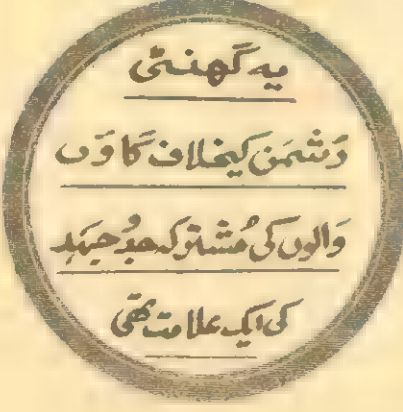 یہ گھنٹی
دَشمَن کیخلاف گاؤں
وَالوں کی مُشترکہ جدُوجہَد
کی ایک علامت تھی